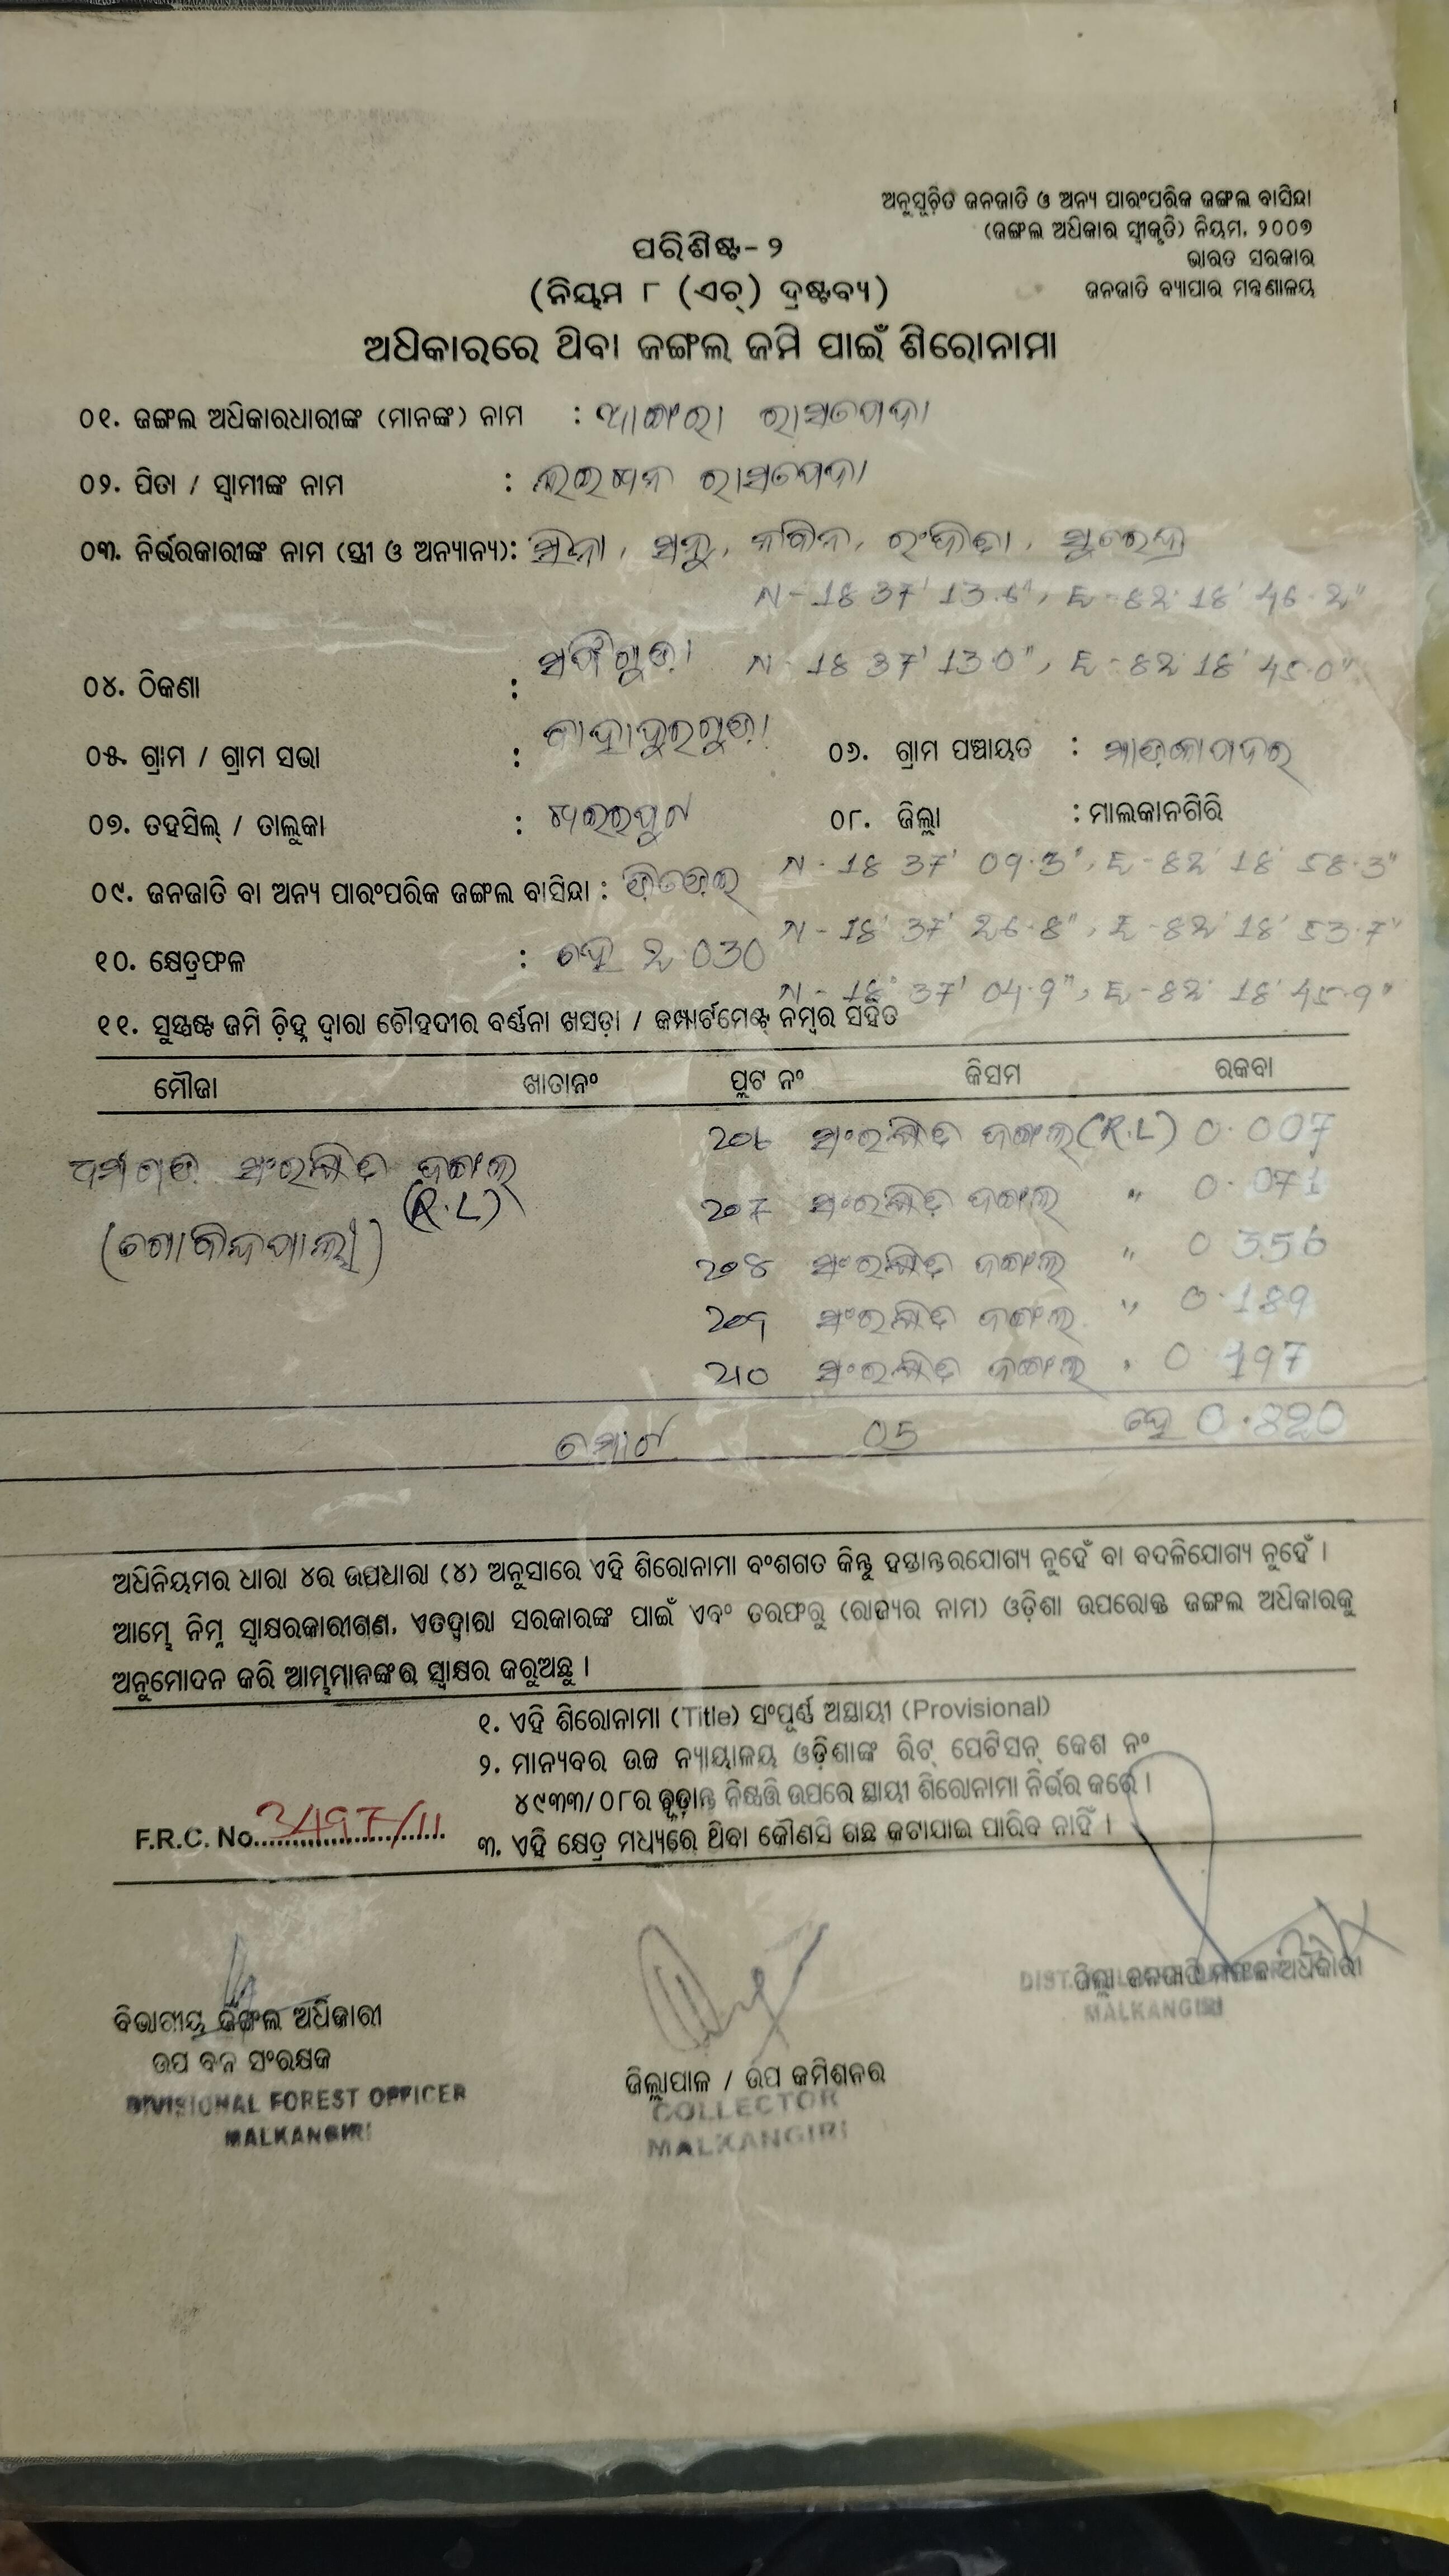 ଅନୁସୂଚିତ ଜନଜାତି ଓ ଅନ୍ୟ ପାରଂପରିକ ଜଙ୍ଗଲ ବାସିନ୍ଦା
(ଜଙ୍ଗଲ ଅଧିକାର ସ୍ୱୀକୃତି) ନିୟମ, ୨୦୦୭
ଭାରତ ସରକାର
ଜନଜାତି ବ୍ୟାପାର ମନ୍ତ୍ରଣାଳୟ
ପରିଶିଷ୍ଟ - ୨
(ନିୟମ ୮ (ଏଚ୍) ଦ୍ରଷ୍ଟବ୍ୟ)
ଅଧିକାରରେ ଥିବା ଜଙ୍ଗଲ ଜମି ପାଇଁ ଶିରୋନାମା
୦୧. ଜଙ୍ଗଲ ଅଧିକାରଧାରୀଙ୍କ (ମାନଙ୍କ) ନାମ :
୦୨. ପିତା / ସ୍ୱାମୀଙ୍କ ନାମ :
୦୩. ନିର୍ଭରକାରୀଙ୍କ ନାମ (ସ୍ତ୍ରୀ ଓ ଅନ୍ୟାନ୍ୟ):
N - 18 37' 13.6", E - 82 18' 46.2"
୦୪. ଠିକଣା : N - 18 37' 13.0", E - 82 18' 45.0"
୦୫. ଗ୍ରାମ / ଗ୍ରାମ ସଭା : ବାହାଦୁରଗୁଡ଼ା ୦୬. ଗ୍ରାମ ପଞ୍ଚାୟତ :
୦୭. ତହସିଲ୍ / ତାଲୁକା : ଖଇରପୁଟ ୦୮. ଜିଲ୍ଲା : ମାଲକାନଗିରି
N - 18 37' 09.3", E - 82 18' 58.3"
୦୯. ଜନଜାତି ବା ଅନ୍ୟ ପାରଂପରିକ ଜଙ୍ଗଲ ବାସିନ୍ଦା :
N - 18 37' 26.8", E - 82 18' 53.7"
୧୦. କ୍ଷେତ୍ରଫଳ : ହେ 2.030
N - 18 37' 04.9", E - 82 18' 45.9"
୧୧. ସୁସ୍ପଷ୍ଟ ଜମି ଚିହ୍ନ ଦ୍ୱାରା ଚୌହଦୀର ବର୍ଣ୍ଣନା ଖସଡ଼ା / କମ୍ପାର୍ଟମେଣ୍ଟ୍ ନମ୍ବର ସହିତ
ମୌଜା ଖାତାନଂ ପ୍ଲଟ ନଂ କିସମ ରକବା
ସଂରକ୍ଷିତ ଜଙ୍ଗଲ (R.L) 0.007
ସଂରକ୍ଷିତ ଜଙ୍ଗଲ
(R.L)
207 ସଂରକ୍ଷିତ ଜଙ୍ଗଲ " 0.071
(ଗୋବିନ୍ଦପାଲି)
ସଂରକ୍ଷିତ ଜଙ୍ଗଲ " 0.356
ସଂରକ୍ଷିତ ଜଙ୍ଗଲ " 0.189
210 ସଂରକ୍ଷିତ ଜଙ୍ଗଲ " 0.197
ମୋଟ 05 ହେ 0.820
ଅଧିନିୟମର ଧାରା ୪ର ଉପଧାରା (୪) ଅନୁସାରେ ଏହି ଶିରୋନାମା ବଂଶଗତ କିନ୍ତୁ ହସ୍ତାନ୍ତରଯୋଗ୍ୟ ନୁହେଁ ବା ବଦଳିଯୋଗ୍ୟ ନୁହେଁ ।
ଆମ୍ଭେ ନିମ୍ନ ସ୍ୱାକ୍ଷରକାରୀଗଣ, ଏତଦ୍ୱାରା ସରକାରଙ୍କ ପାଇଁ ଏବଂ ତରଫରୁ (ରାଜ୍ୟର ନାମ) ଓଡ଼ିଶା ଉପରୋକ୍ତ ଜଙ୍ଗଲ ଅଧିକାରକୁ
ଅନୁମୋଦନ କରି ଆମ୍ଭମାନଙ୍କର ସ୍ୱାକ୍ଷର କରୁଅଛୁ ।
୧. ଏହି ଶିରୋନାମା (Title) ସଂପୂର୍ଣ୍ଣ ଅସ୍ଥାୟୀ (Provisional)
୨. ମାନ୍ୟବର ଉଚ୍ଚ ନ୍ୟାୟାଳୟ ଓଡ଼ିଶାଙ୍କ ରିଟ୍ ପେଟିସନ୍ କେଶ ନଂ
୪୯୩୩/୦୮ର ଚୂଡ଼ାନ୍ତ ନିଷ୍ପତ୍ତି ଉପରେ ସ୍ଥାୟୀ ଶିରୋନାମା ନିର୍ଭର କରେ ।
୩. ଏହି କ୍ଷେତ୍ର ମଧ୍ୟରେ ଥିବା କୌଣସି ଗଛ କଟାଯାଇ ପାରିବ ନାହିଁ ।
F.R.C. No. 3497/11
ବିଭାଗୀୟ ଜଙ୍ଗଲ ଅଧିକାରୀ
ଉପ ବନ ସଂରକ୍ଷକ
DIVISIONAL FOREST OFFICER
MALKANGIRI
ଜିଲ୍ଲାପାଳ / ଉପ କମିଶନର
COLLECTOR
MALKANGIRI
ଜିଲ୍ଲା ଜନଜାତି ମଙ୍ଗଳ ଅଧିକାରୀ
MALKANGIRI